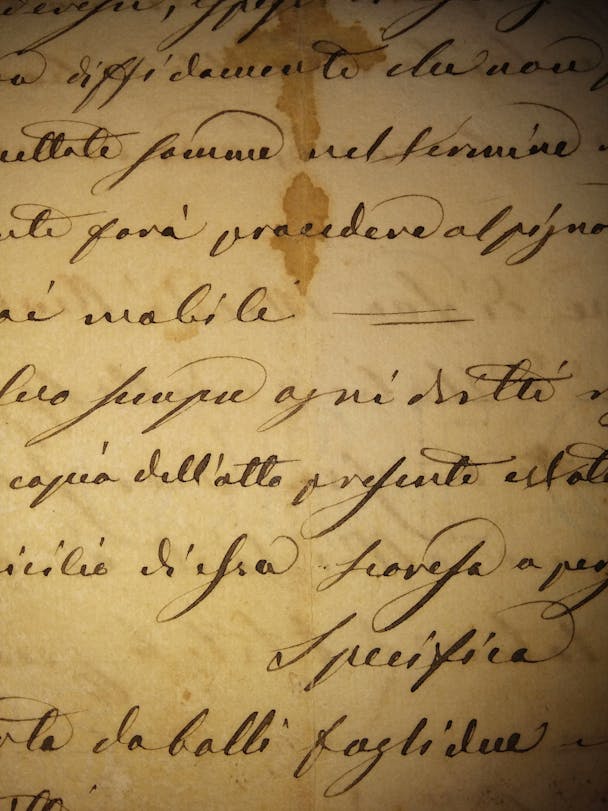 diffidamente che non
mettate somme nel termine
nte farà procedere al pigno
oi mobili
lvo sempre ogni diritti
copia dell'atto presente è stata
icilio di essa Scoresa a per
Specifica
rta da bolli fogli due